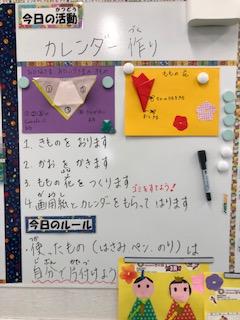 かつどう
今日の活動
づく
カレンダー作り
ももの花
1. きものを おります
2. かお を かきます
3. ももの花をつくります
ゴミをすてよう!
がようし
4. 画用紙とカレンダーをもらってはります
今日のルール
つか
・使ったもの(はさみ ペン、のり)は
じぶん かたづ
自分で片付けよう